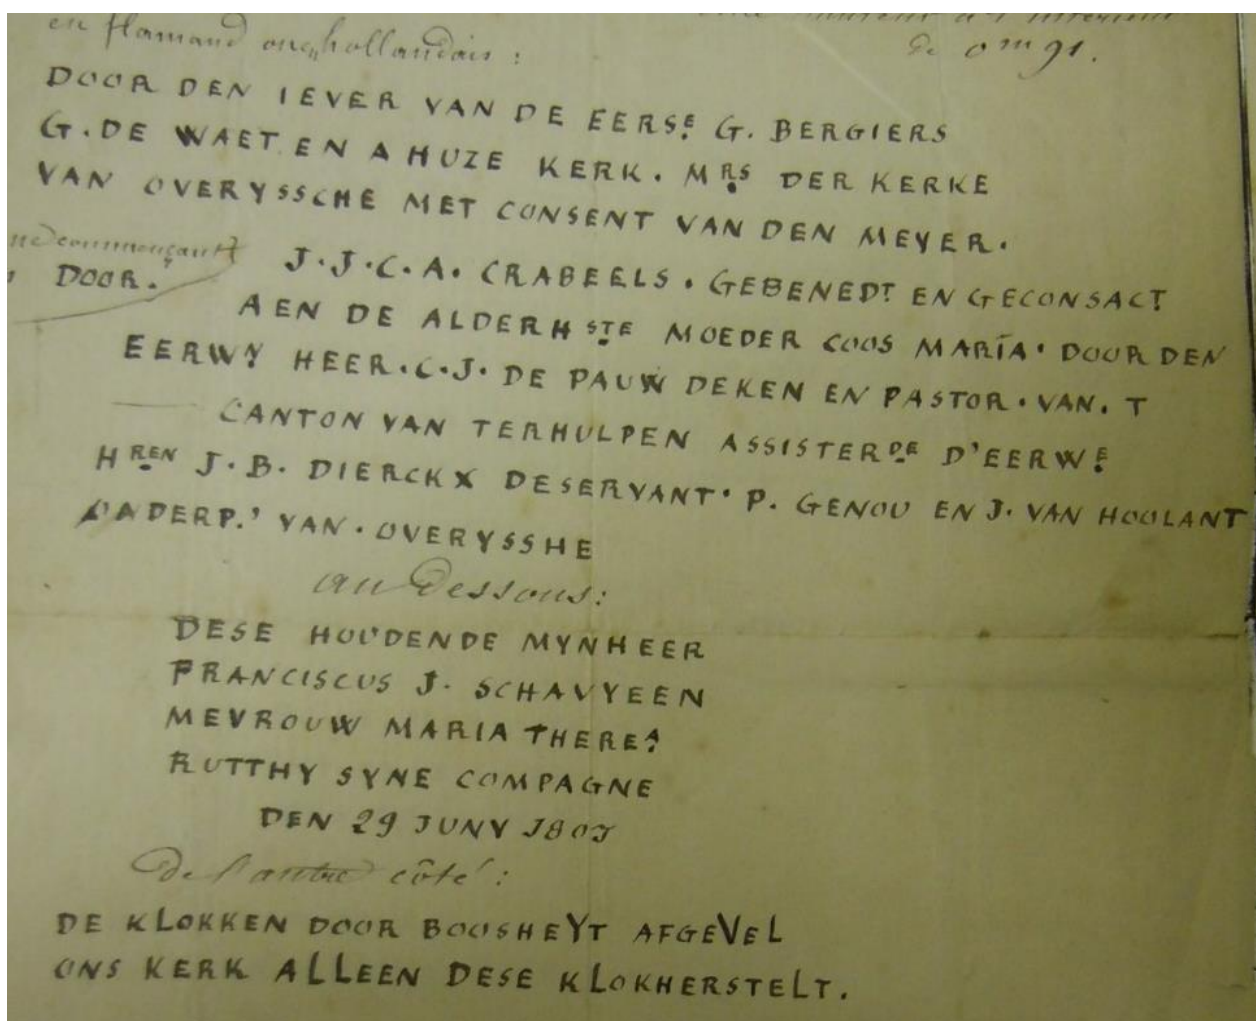 en flamand ou hollandais :
à l'intérieur
de 0m 91.
DOOR DEN IEVER VAN DE EERSE. G. BERGIERS
G. DE WAET EN A HUZE KERK. MRS DER KERKE
VAN OVERYSSCHE MET CONSENT VAN DEN MEYER.
commençant
DOOR.
J.J.C.A. CRABEELS. GEBENEDT EN GECONSACT
AEN DE ALDERHSTE MOEDER COOS MARIA. DOOR DEN
EERWY HEER. C.J. DE PAUW DEKEN EN PASTOR. VAN. T
CANTON VAN TERHULPEN ASSISTERDE D'EERWE
HREN J.B. DIERCKX DESERVANT. P. GENOU EN J. VAN HOOLANT
ONDERP.' VAN. OVERYSSHE
au Dessous :
DESE HOUDENDE MYNHEER
FRANCISCUS J. SCHAVYEEN
MEVROUW MARIA THEREA
RUTTHY SYNE COMPAGNE
DEN 29 JUNY
De l'autre côté :
DE KLOKKEN DOOR BOOSHEYT AFGEVEL
ONS KERK ALLEEN DESE KLOKHERSTELT.